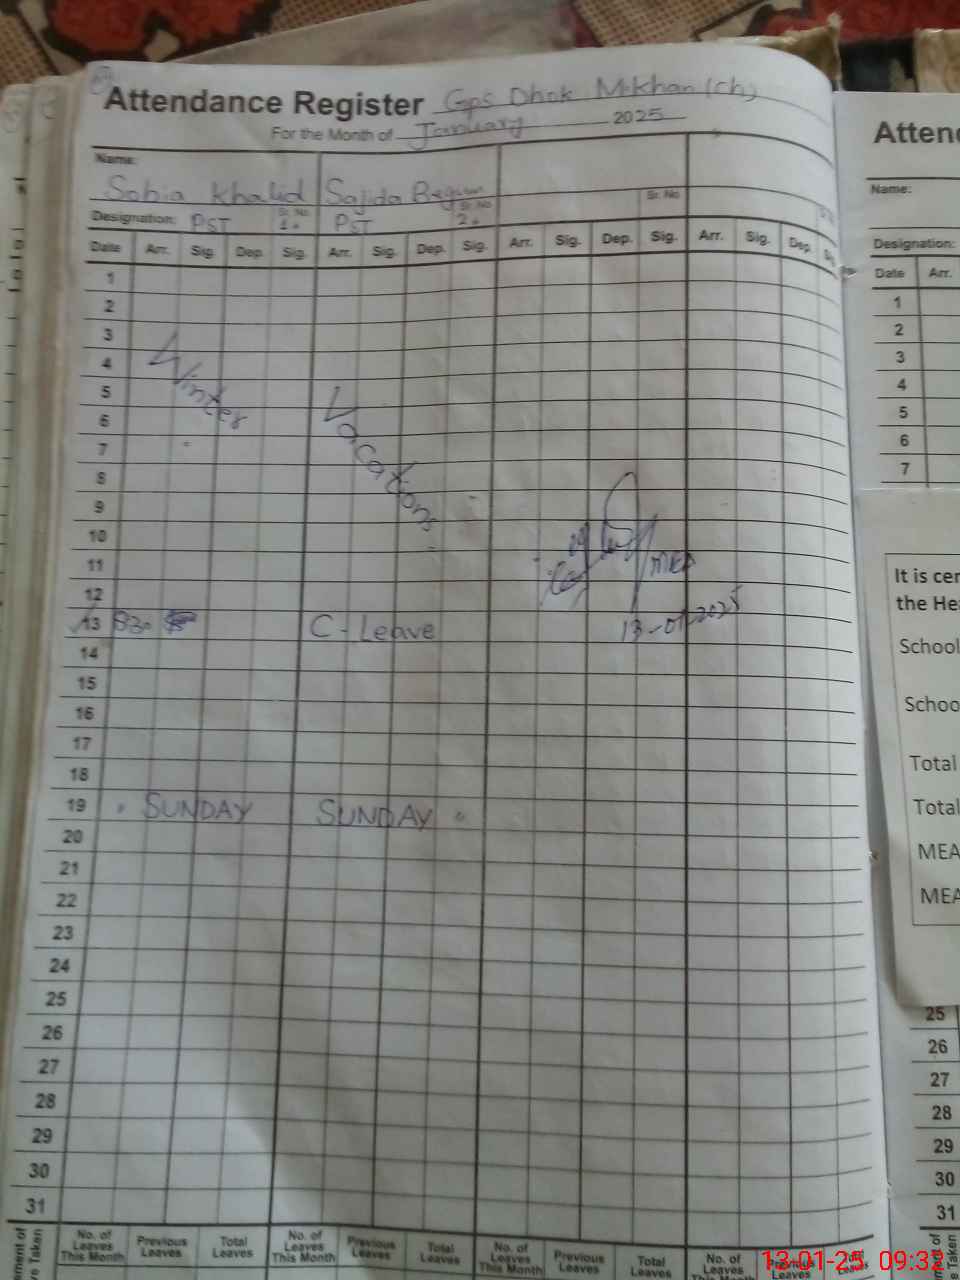 Attendance Register Gps Dhok M.Khan (Ch)
For the Month of January 2025
Name:
Sobia Khalid Sajida Begum
Sr. No Sr. No Sr. No
Designation: PST 1. PST 2.
Date Arr. Sig. Dep. Sig. Arr. Sig. Dep. Sig. Arr. Sig. Dep. Sig. Arr. Sig. Dep. Sig.
1
2
3
4
5
6
7
8
9
10
11
12
13 830 C-Leave
14
15
16
17
18
19 SUNDAY SUNDAY
20
21
22
23
24
25
26
27
28
29
30
31
Winter Vacations
MEA
13-01-2025
No. of Leaves This Month Previous Leaves Total Leaves No. of Leaves This Month Previous Leaves Total Leaves No. of Leaves This Month Previous Leaves Total Leaves No. of Leaves This Month Previous Leaves Total Leaves
Atten
Name:
Designation:
Date Arr.
1
2
3
4
5
6
7
It is cer
the He
School
Schoo
Total
Total
MEA
MEA
25
26
27
28
29
30
31
13-01-25 09:32